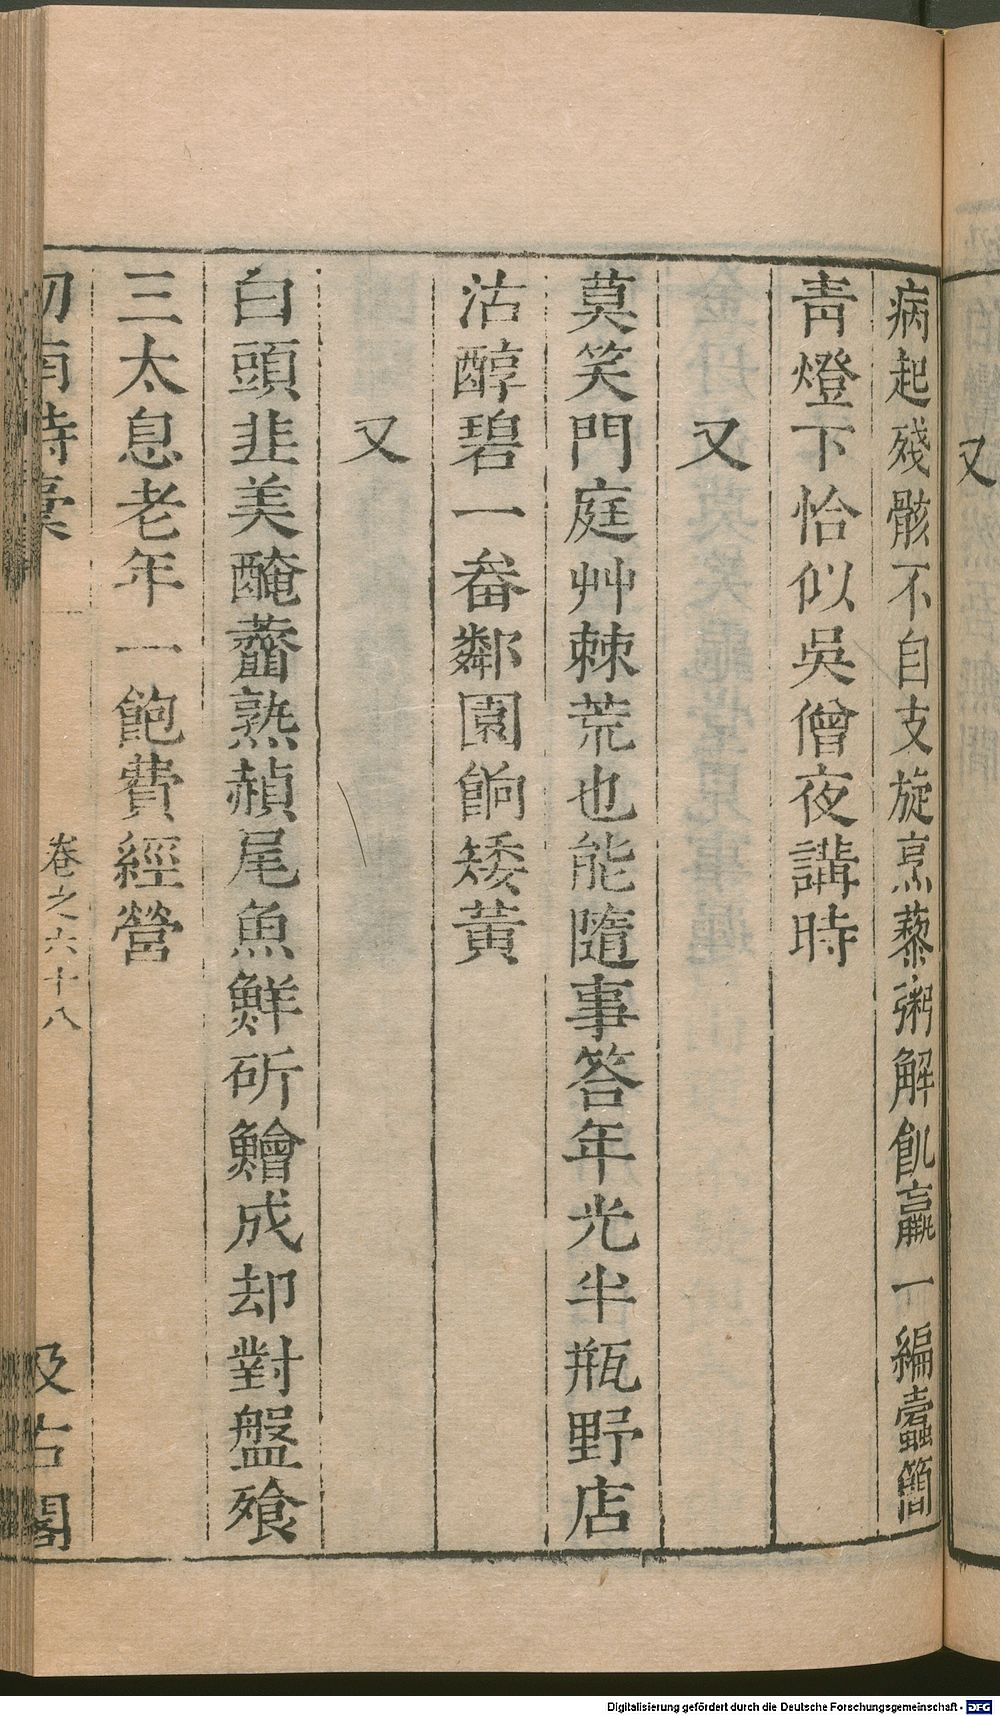 又
病起殘骸不自支旋烹藜粥解飢羸一編蠹簡
青燈下恰似吳僧夜講時
又
莫笑門庭艸棘荒也能隨事答年光半瓶野店
沽醇碧一畚鄰園餉矮黃
又
白頭韭美醃虀熟赬尾魚鮮斫鱠成却對盤飧
三太息老年一飽費經營
劒南詩稾
卷之六十八
汲古閣
Digitalisierung gefördert durch die Deutsche Forschungsgemeinschaft - DFG